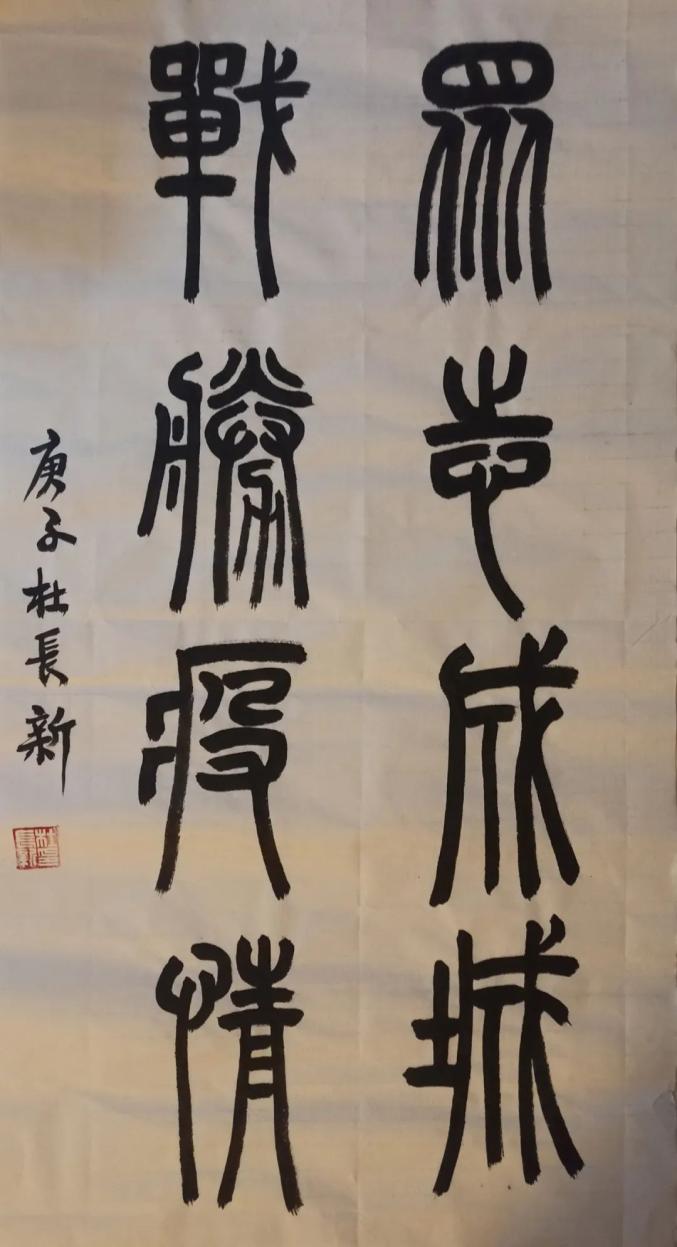 眾志成城
戰勝疫情
庚子杜長新